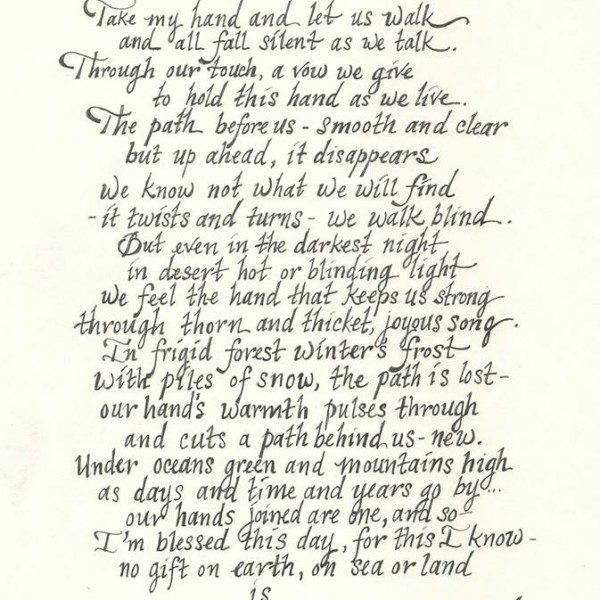 Take my hand and let us walk
and all fall silent as we talk.
Through our touch, a vow we give
to hold this hand as we live.
The path before us - smooth and clear
but up ahead, it disappears
we know not what we will find
- it twists and turns - we walk blind.
But even in the darkest night
in desert hot or blinding light
we feel the hand that keeps us strong
through thorn and thicket, joyous song.
In frigid forest winter's frost
with piles of snow, the path is lost -
our hand's warmth pulses through
and cuts a path behind us - new.
Under oceans green and mountains high
as days and time and years go by...
our hands joined are one, and so -
I'm blessed this day, for this I know -
no gift on earth, on sea or land
is